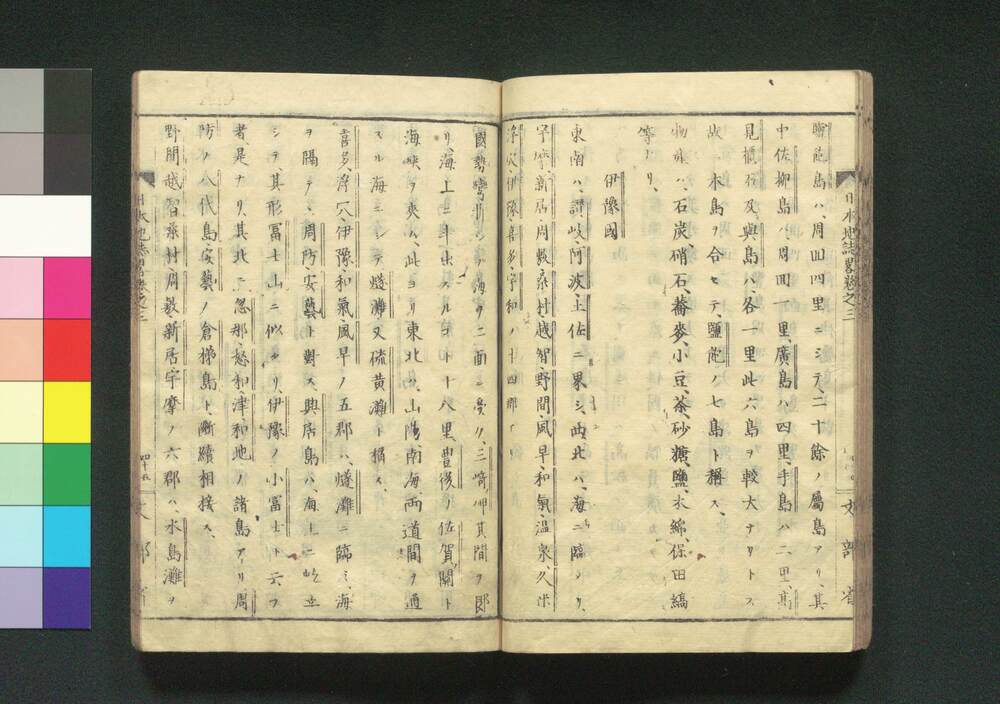 鹽飽島ハ、周回四里ニシテ、二十餘ノ屬島アリ、其
中佐柳島ハ、周囘一里、廣島ハ四里、手島ハ二里、高
見、櫃石及與島ハ、各一里、此六島ヲ較大ナリトス
故ニ本島ヲ合セテ、鹽飽ノ七島ト稱ス、
物産ハ、石炭、硝石、蕎麥、小豆、茶、砂糖、鹽、木綿、保田縞
等ナリ、
伊豫國
東南ハ、讃岐、阿波、土佐ニ界シ、西北ハ、海ニ臨メリ、
宇摩、新居、周敷、桑村、越智、野間、風早、和氣、温泉、久米
浮穴、伊豫、喜多、宇和ハ十四郡アリ
國勢彎形シテ海ヲ二面ニ受ケ、三崎岬其間ヲ
リ、海上ニ斗出スル七十八里、豊後ノ佐賀關ト
海峽ヲ夾ム、此ヨリ東北ハ、山陽、南海、兩道間ヲ通
スル海ニシテ、燧灘又硫黄灘ト稱ス、
喜多、浮穴、伊豫、和氣、風早ノ五郡ハ、燧灘ニ臨ミ、海
ヲ隔テヽ、周防、安藝ト對ス、興居島ハ海上ニ屹立
シテ、其形冨士山ニ似タリ、伊豫ノ小冨士ト云フ
者是ナリ、其北ニ忽那、怒和、津和地ノ諸島アリ、周
防ノ八代島、安藝ノ倉梯島ト、斷續相接ス、
野間、越智、桑村、周敷、新居、宇摩ノ六郡ハ、水島灘ヲ
日本地誌畧卷之三
文部省
日本地誌畧卷之三
四十五
文部省